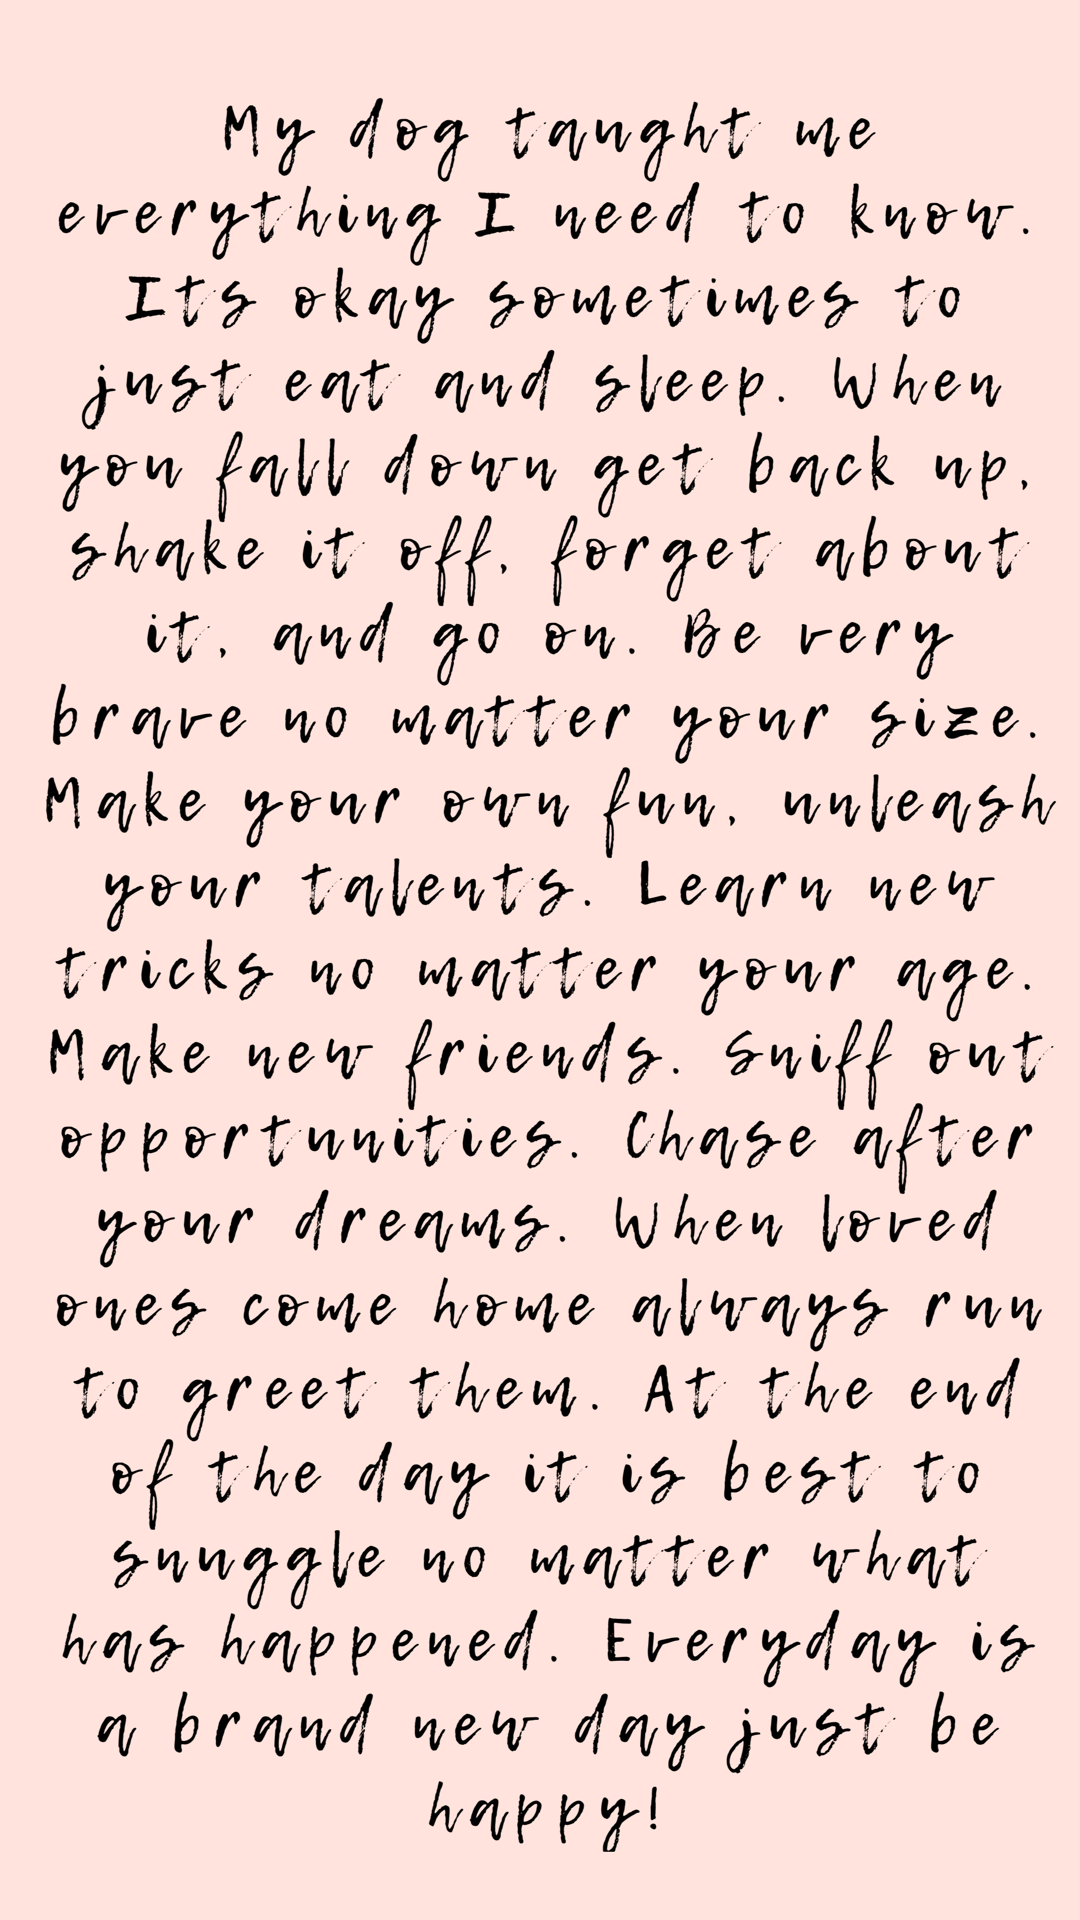 My dog taught me
everything I need to know.
Its okay sometimes to
just eat and sleep. When
you fall down get back up,
shake it off, forget about
it, and go on. Be very
brave no matter your size.
Make your own fun, unleash
your talents. Learn new
tricks no matter your age.
Make new friends. Sniff out
opportunities. Chase after
your dreams. When loved
ones come home always run
to greet them. At the end
of the day it is best to
snuggle no matter what
has happened. Everyday is
a brand new day just be
happy!